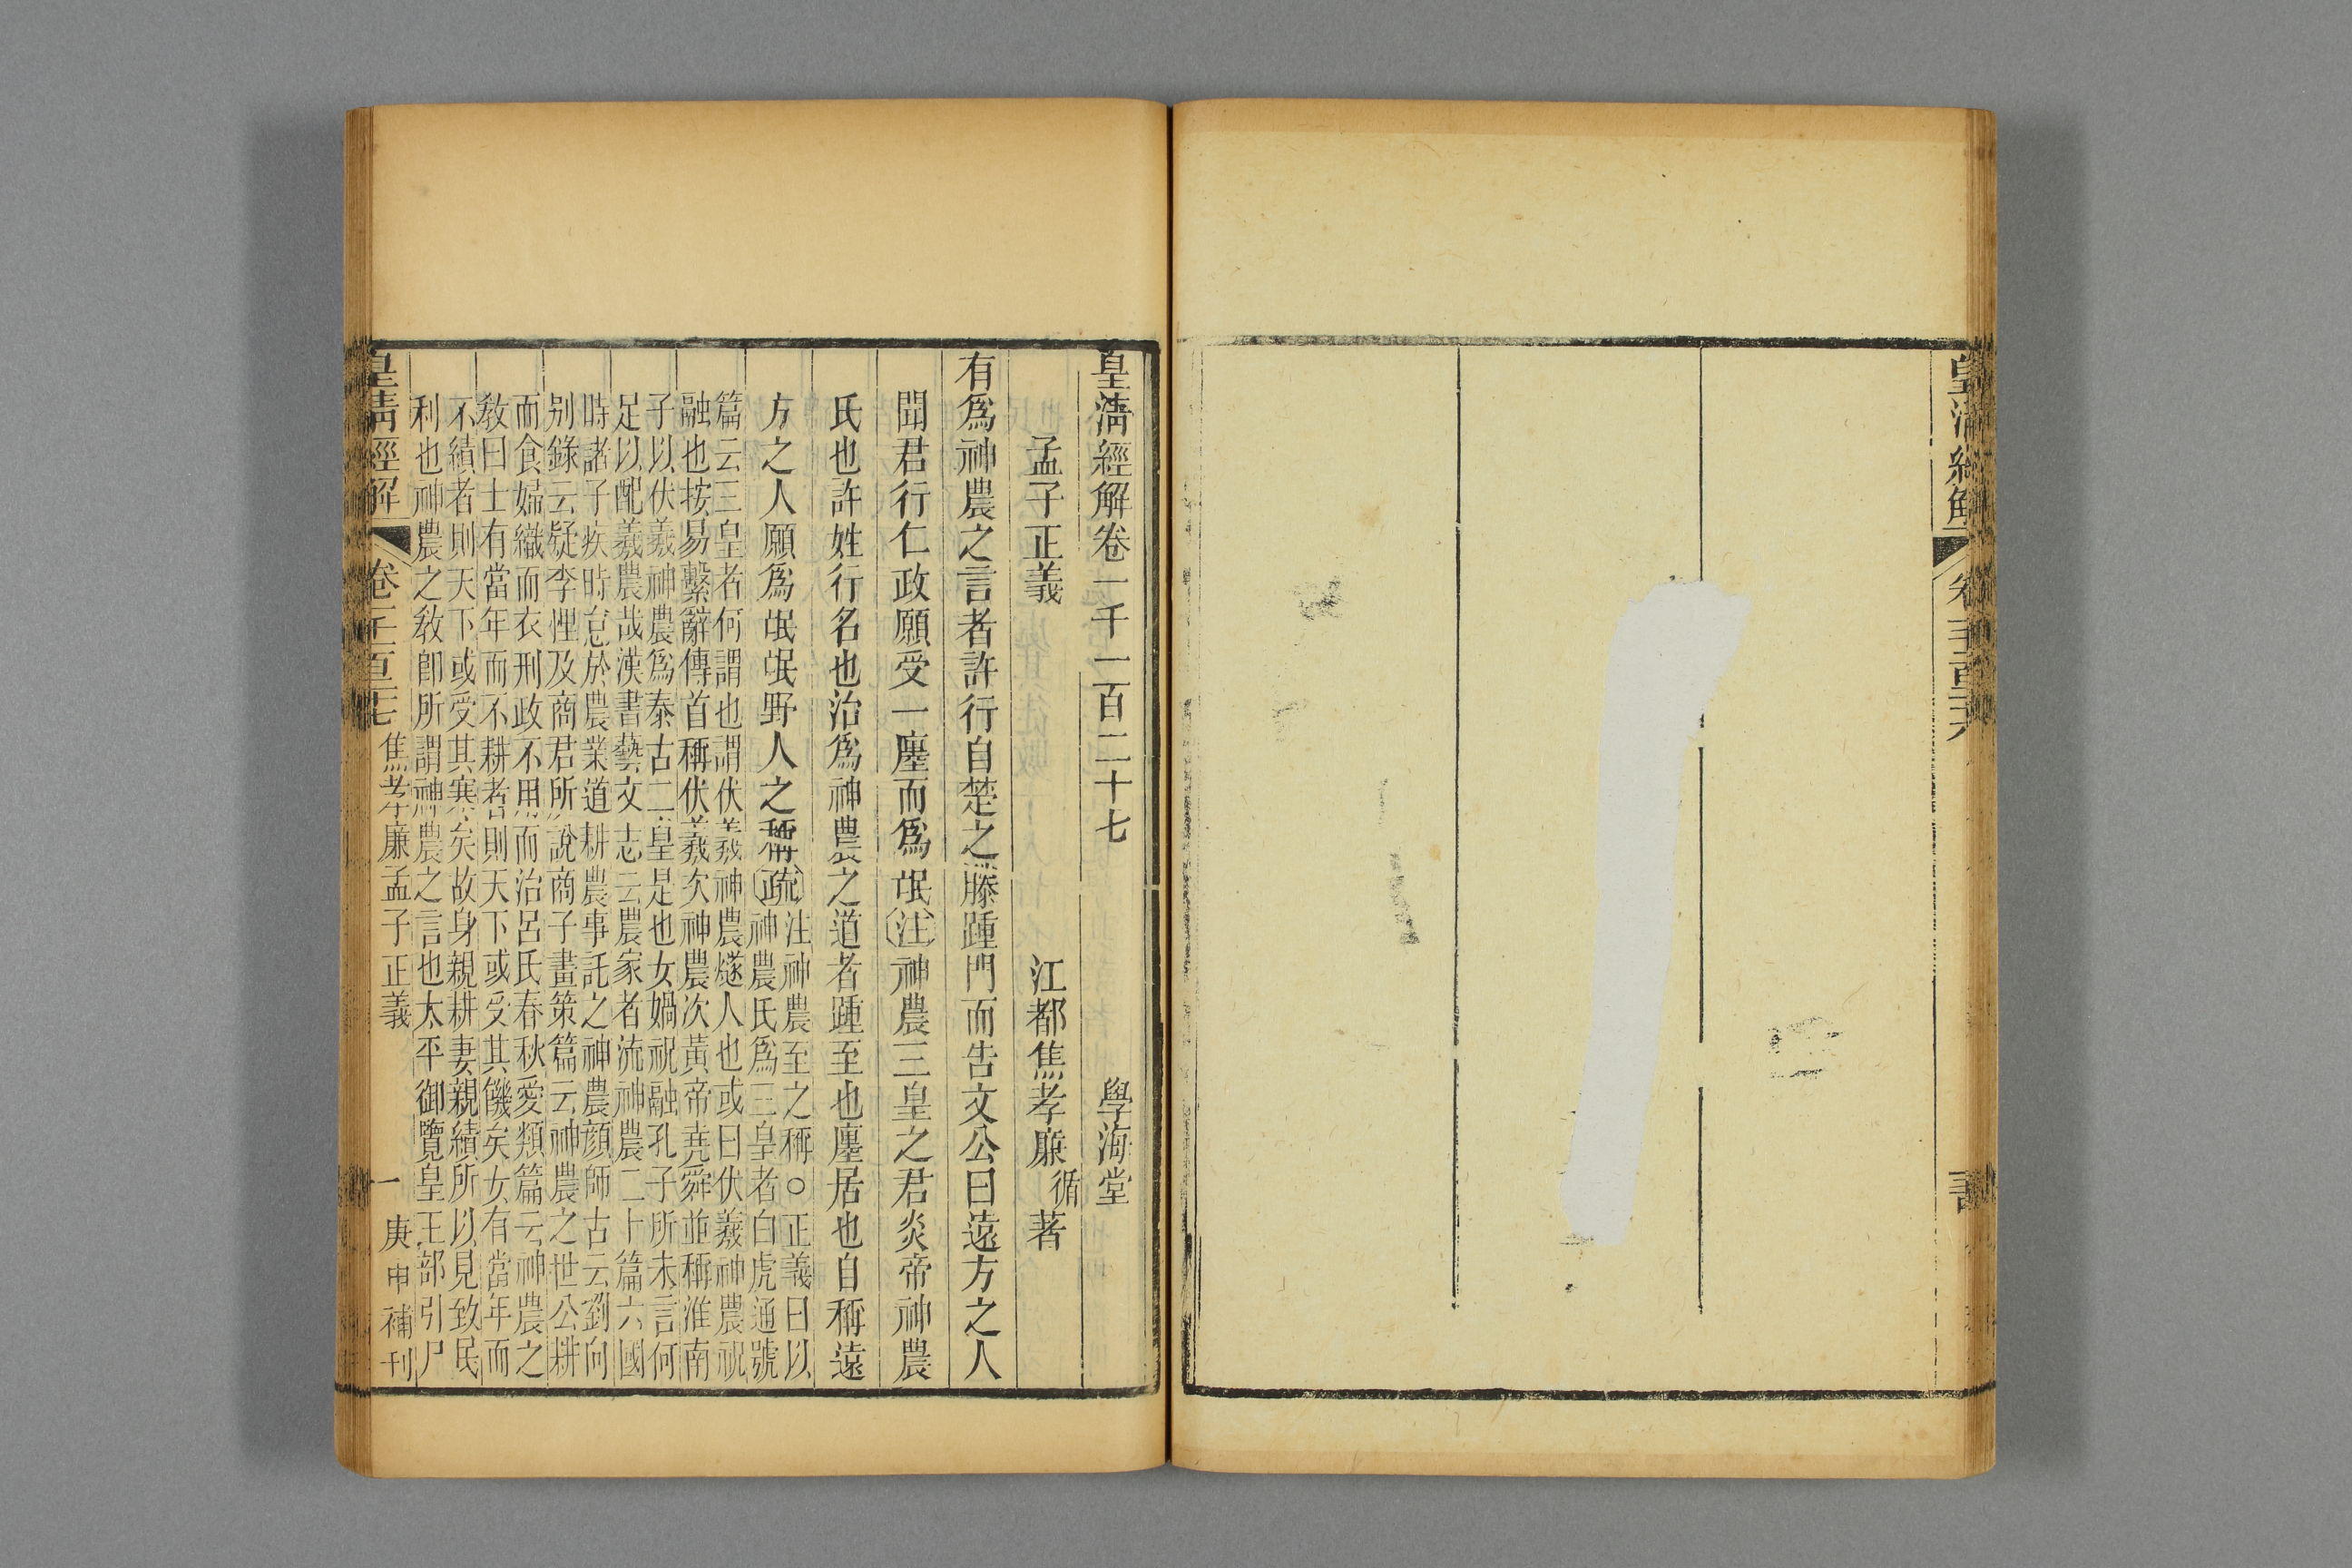 皇清經解
皇清經解卷一千一百二十七
學海堂
孟子正義
江都焦孝廉循著
有爲神農之言者許行自楚之滕踵門而告文公曰遠方之人
聞君行仁政願受一廛而爲氓注神農三皇之君炎帝神農
氏也許姓行名也治爲神農之道者踵至也廛居也自稱遠
方之人願爲氓氓野人之稱疏
注神農至之稱○正義曰以
神農氏爲三皇者白虎通號
篇云三皇者何謂也謂伏羲神農燧人也或曰伏羲神農祝
融也按易繫辭傳首稱伏羲次神農次黃帝堯舜並稱淮南
子以伏羲神農爲泰古二皇是也女媧祝融孔子所未言何
足以配羲農哉漢書藝文志云農家者流神農二十篇六國
時諸子疾時怠於農業道耕農事託之神農顏師古云劉向
別錄云疑李悝及商君所說商子畫策篇云神農之世公耕
而食婦織而衣刑政不用而治呂氏春秋愛類篇云神農之
敎曰士有當年而不耕者則天下或受其饑矣女有當年而
不績者則天下或受其寒矣故身親耕妻親績所以見致民
利也神農之敎卽所謂神農之言也太平御覽皇王部引尸
皇清經解
卷 焦孝廉孟子正義
一
庚申補刊